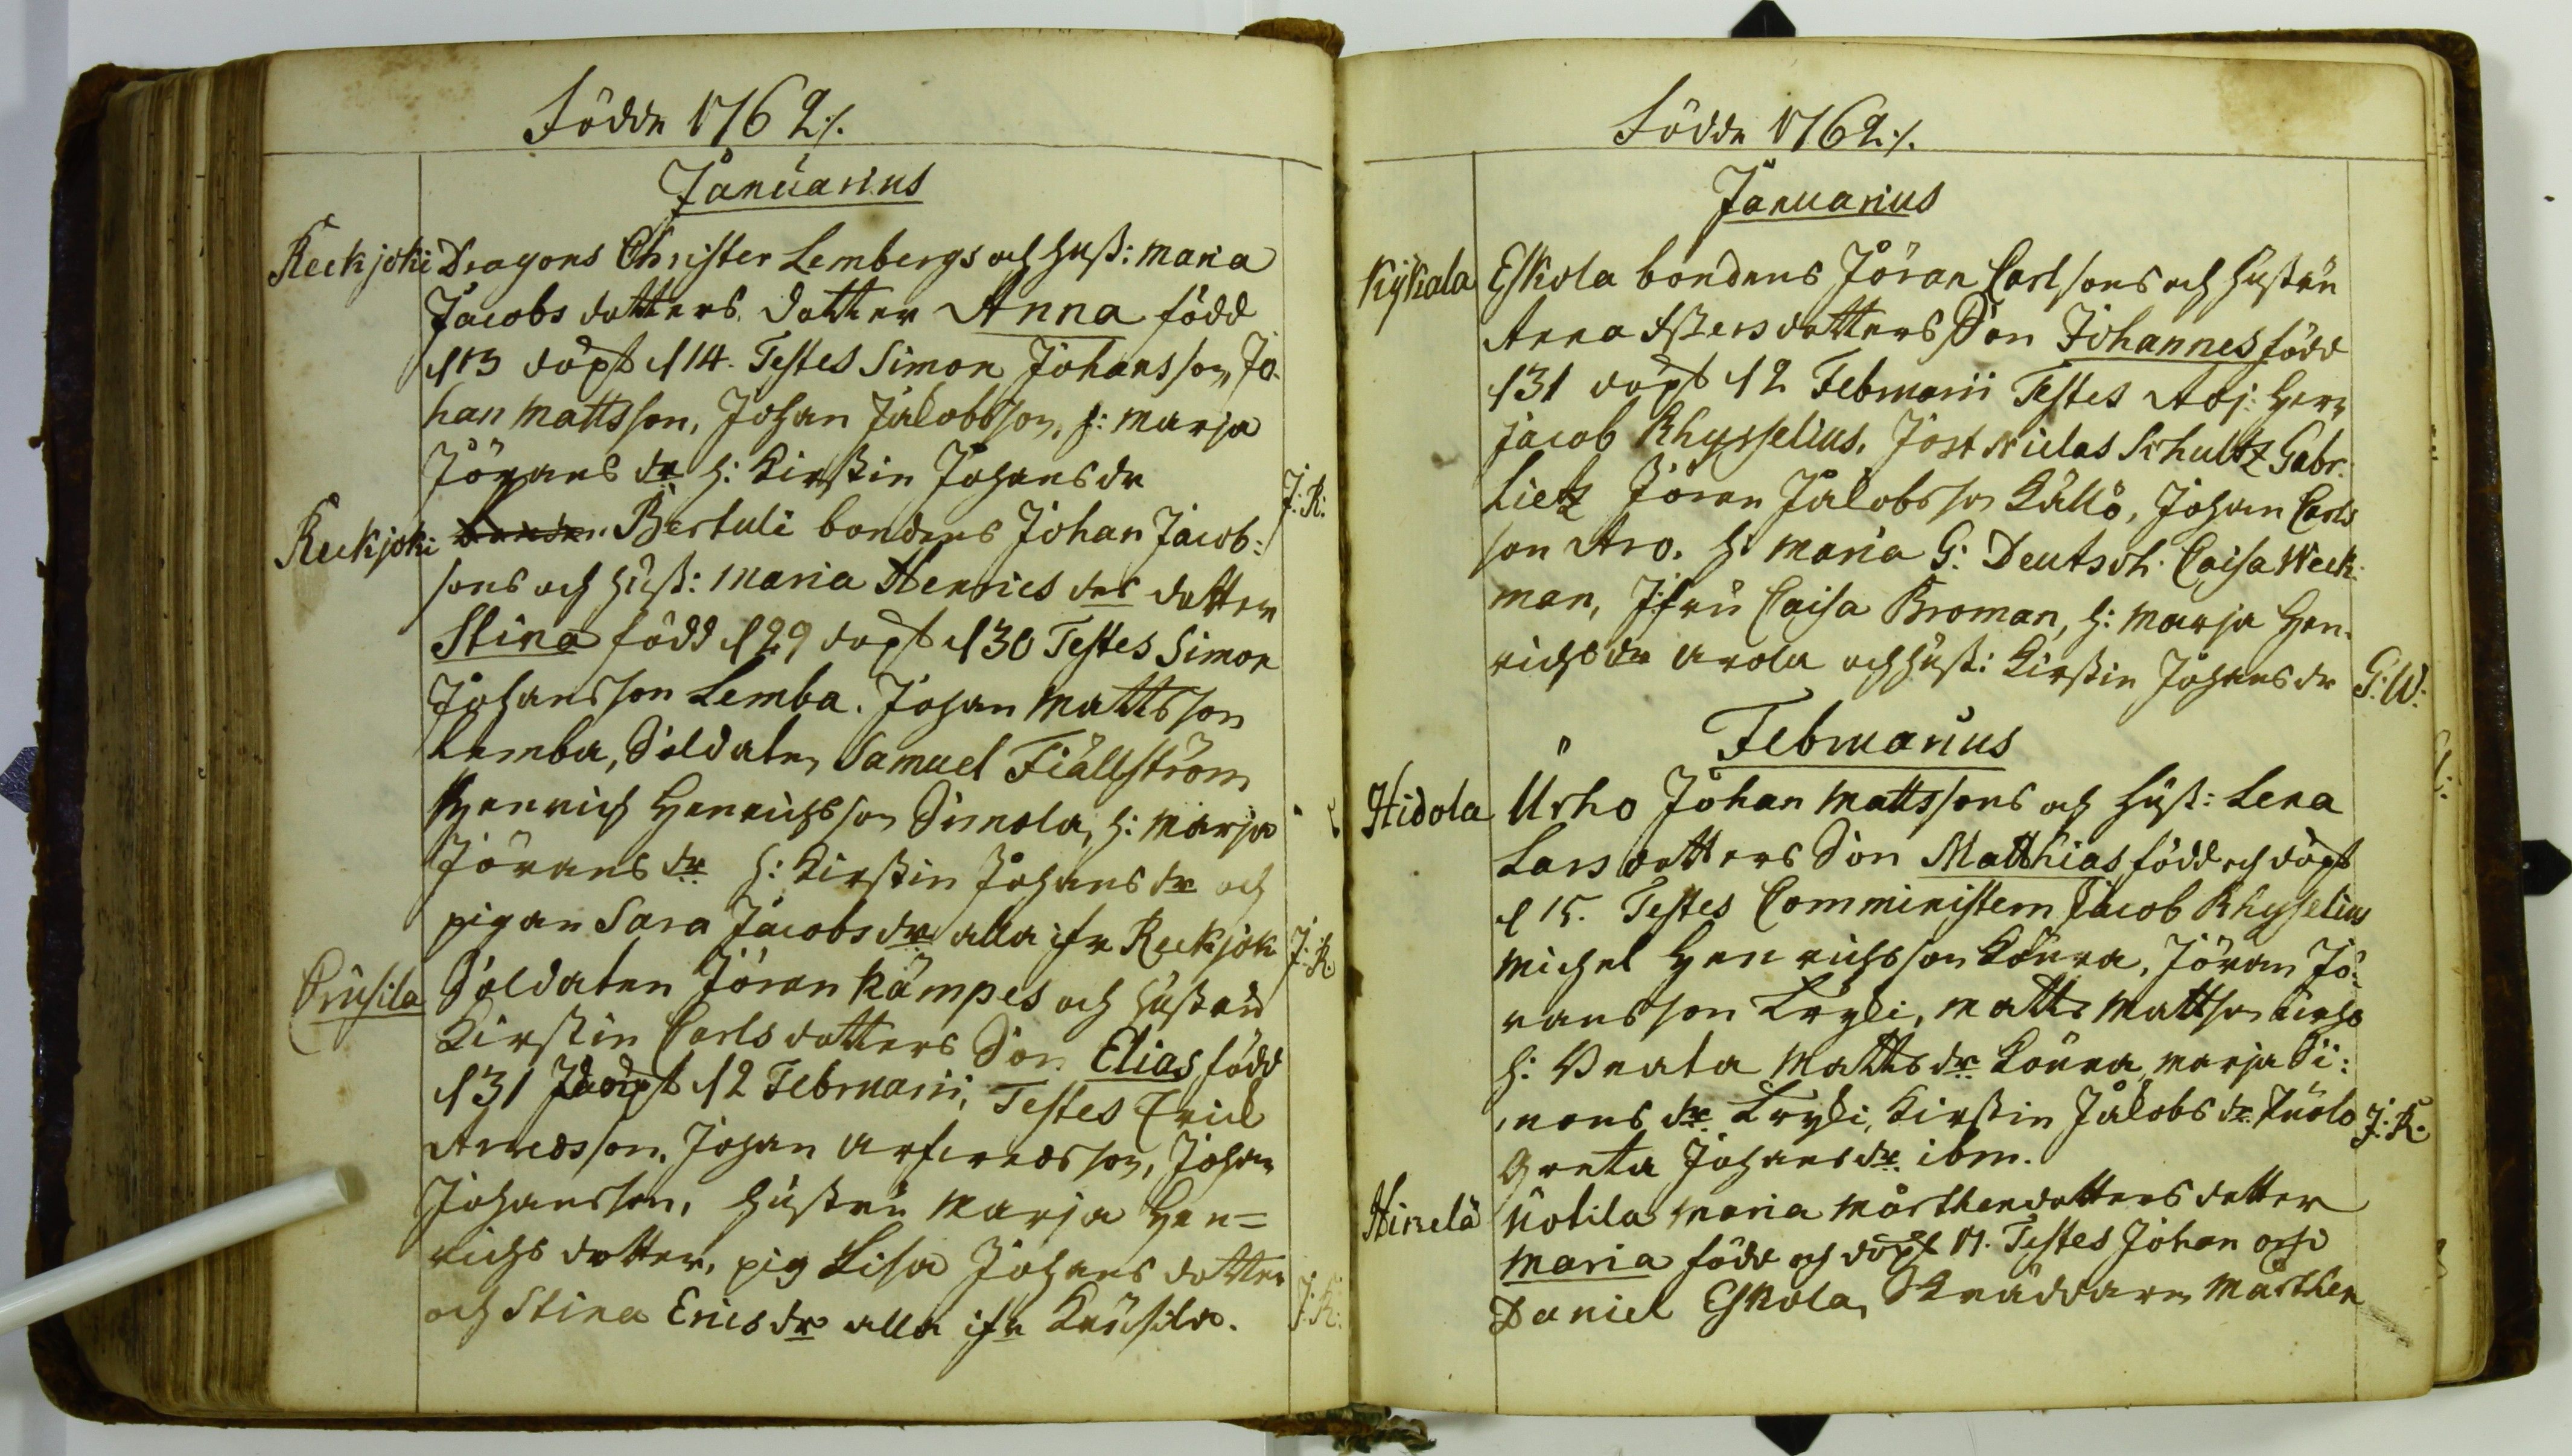 Födde 1762./.
Januarius
Reckjoki Dragons Christer Lembergs och hust: Maria
Jacobs dotters dotter Anna född
d 13 döpt d 14. Testes Simon Johansson, Jo-
han Mattsson, Johan Jakobsson, h: Marja
Jörans dr h: Kirstin Johans dr J: R:
Reckjoki Bertuli bondens Johan Jacob-
sons och hust: Maria Henrics drs dotter
Stina född d 29 döpt d 30 Testes Simon
Johansson Lemba. Johan Mattsson
Lemba, Soldaten Samuel Fiällström
Henrich Henrichsson Simola, h: Marja
Jörans dr h: Kirstin Johans dr och
pigan Sara Jacobs dr alla ifr Reckjok J: R:
Krusila Soldaten Jöran Kämpes och hustru
Kirstin Carls dotters Son Elias född
d 31 döpt d 2 Februarii, Testes Eric
Johan Johan
Johansson, hustru Marja Hen=
richs dotter, pig Lisa Johans dotter
och Stina Erics dr alla ifr Krusila. J: R:
Födde 1762./.
Januarius
Kykala Eskola bondens Jöran Carlsons och hustru
Anna dotters Son Johannes född
d 31 döpt d 2 Februarii Testes Adj: Herr
Jacob Rhyzelius, Jost Niclas Schultz Gabr:
Lietz Jöran Jakobsson Källö, Johan Carls
son Aro. h: Maria G: Deutsch. Caisa Weck-
man, Jfru Caisa Broman, h: Marja Hen-
richs dr Arola och hust: Kirstin Johans dr G: W:
Februarius
Hidola Urho Johan Mattssons och hust: Lena
Lars dotters Son Matthias född och döpt
d 15. Testes Comministern Jacob Rhyzelius
Michel Henrichsson Kouva, Jöran Jö-
ransson Kryli, Matts Mattsson Urho
h: Beata Matts dr Kouva, Marja Si-
mons dr Kryli, Kirstin Jakobs dr J: R:
Greta Johans dr ibm.
Hirnelä Uotila Maria Mårthendotters dotter
Maria född och döpt Testes Johan
Daniel Eskola, Skräddaren Mårthen